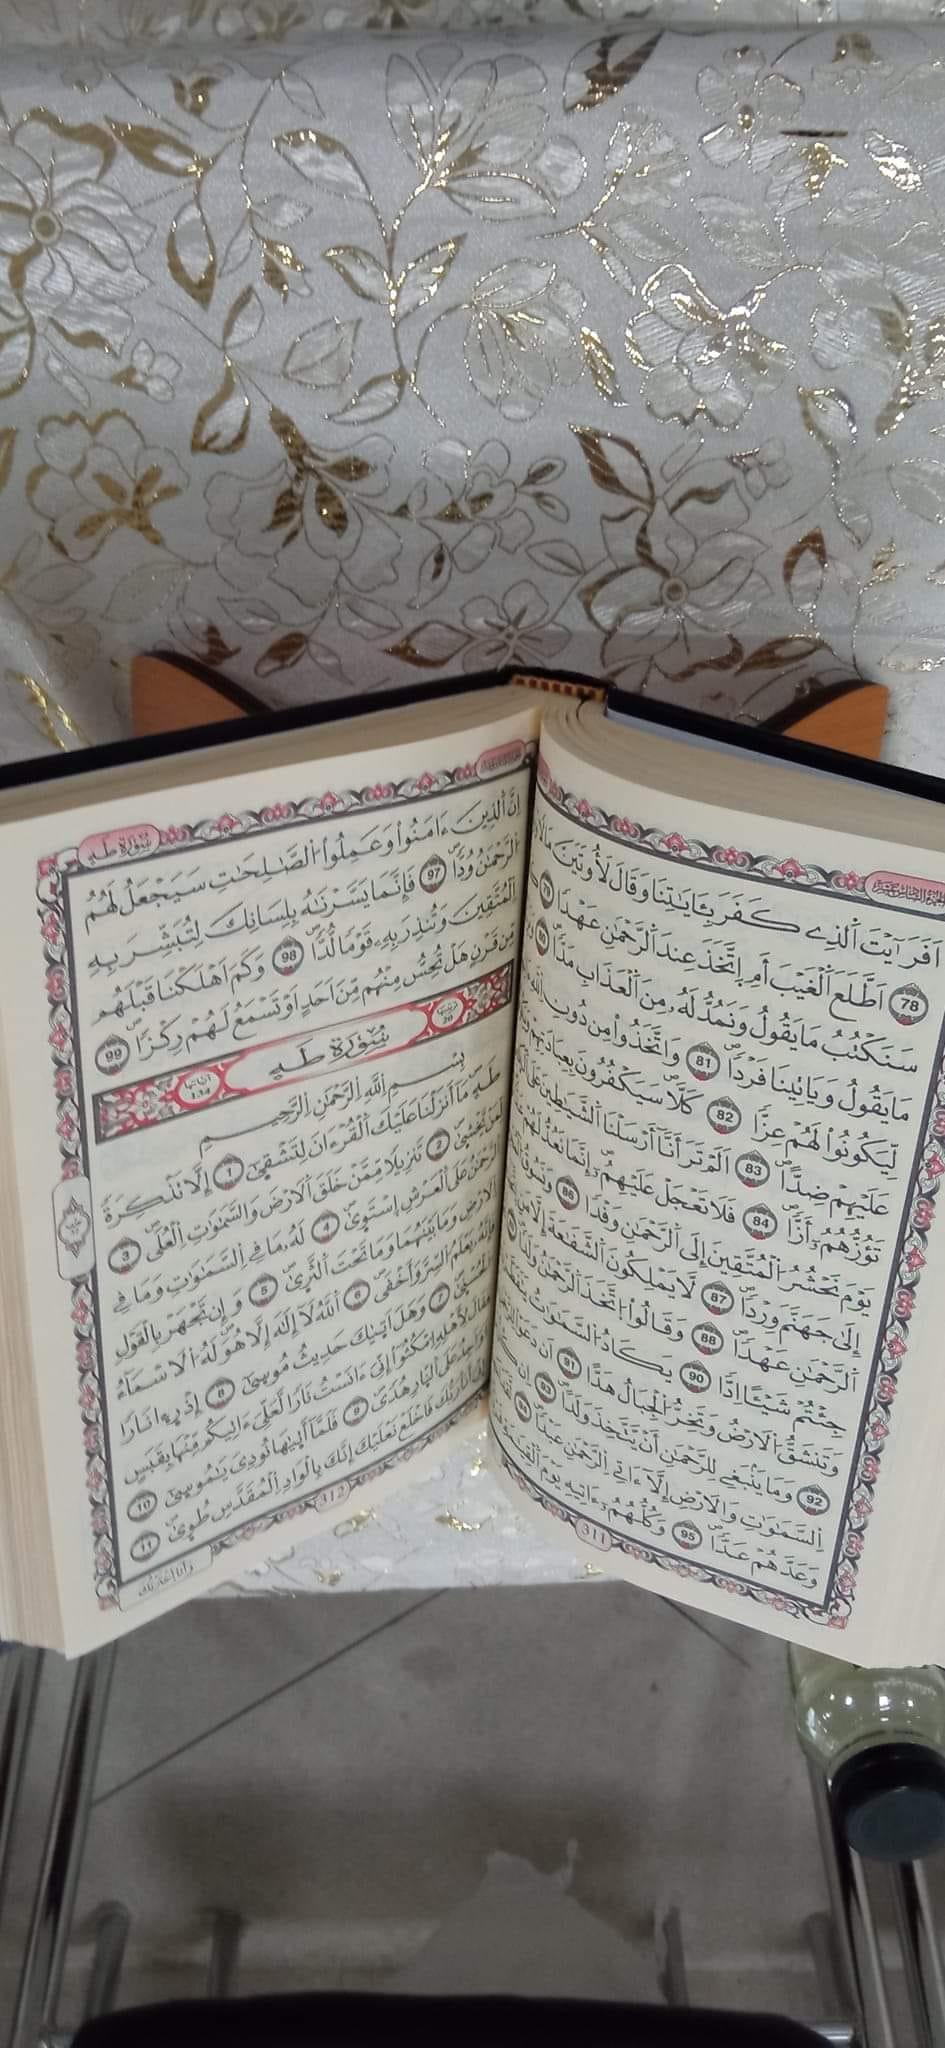 اَفَرَاَيْتَ اَلذِے كَفَرَ بِـَٔايَٰتِنَا وَقَالَ لَأُوتَيَنَّ مَالًا
78 اَطَّلَعَ اَلْغَيْبَ أَمِ اِتَّخَذَ عِندَ اَلرَّحْمَٰنِ عَهْدًا 79
سَنَكْتُبُ مَا يَقُولُ وَنَمُدُّ لَهُۥ مِنَ اَلْعَذَابِ مَدًّا 80
مَا يَقُولُ وَيَاتِينَا فَرْدًا 81 وَاتَّخَذُوا۟ مِن دُونِ اِللَّهِ
لِّيَكُونُوا۟ لَهُمْ عِزًّا 82 كَلَّا سَيَكْفُرُونَ بِعِبَادَتِهِمْ
عَلَيْهِمْ ضِدًّا 83 اَلَمْ تَرَ أَنَّآ أَرْسَلْنَا اَلشَّيَٰطِينَ عَلَى
تَؤُزُّهُمُۥٓ أَزًّا 84 فَلَا تَعْجَلْ عَلَيْهِمُۥٓ إِنَّمَا نَعُدُّ لَهُمْ
يَوْمَ نَحْشُرُ اُلْمُتَّقِينَ إِلَى اَلرَّحْمَٰنِ وَفْدًا 86 وَنَسُوقُ
إِلَىٰ جَهَنَّمَ وِرْدًا 87 لَّا يَمْلِكُونَ اَلشَّفَٰعَةَ إِلَّا مَنِ
اِلرَّحْمَٰنِ عَهْدًا 88 وَقَالُوا۟ اُتَّخَذَ اَلرَّحْمَٰنُ وَلَدًا
جِئْتُمْ شَيْـًٔا اِدًّا 90 يَكَادُ اُلسَّمَٰوَٰتُ
وَتَنشَقُّ اُلَارْضُ وَتَخِرُّ اُلْجِبَالُ هَدًّا 91 اَن دَعَوْا
92 وَمَا يَنۢبَغِے لِلرَّحْمَٰنِ أَنْ يَّتَّخِذَ وَلَدًا 93 اِن
اِلسَّمَٰوَٰتِ وَالَارْضِ إِلَّآ ءَاتِے اِلرَّحْمَٰنِ عَبْدًا 94
وَعَدَّهُمْ عَدًّا 95 وَكُلُّهُمُۥٓ ءَاتِيهِ يَوْمَ اَلْقِيَٰمَةِ
311
سُورَةُ طَهَ
اِنَّ اَلذِينَ ءَامَنُوا۟ وَعَمِلُوا۟ اُلصَّٰلِحَٰتِ سَيَجْعَلُ لَهُمُ
اُلرَّحْمَٰنُ وُدًّا 97 فَإِنَّمَا يَسَّرْنَٰهُ بِلِسَانِكَ لِتُبَشِّرَ بِهِ
اِلْمُتَّقِينَ وَتُنذِرَ بِهِۦ قَوْمًا لُّدًّا 98 وَكَمَ اَهْلَكْنَا قَبْلَهُم
مِّن قَرْنٍ هَلْ تُحِسُّ مِنْهُم مِّنَ اَحَدٍ اَوْ تَسْمَعُ لَهُمْ رِكْزًا 99
سُورَةُ طَهَ
134
بِسْمِ اِللَّهِ اِلرَّحْمَٰنِ اِلرَّحِيمِ
طَهَ مَآ أَنزَلْنَا عَلَيْكَ اَلْقُرْءَانَ لِتَشْقَىٰٓ 1 إِلَّا تَذْكِرَةً
لِّمَنْ يَّخْشَىٰ 2 تَنزِيلًا مِّمَّنْ خَلَقَ اَلَارْضَ وَالسَّمَٰوَٰتِ اِلْعُلَى 3
اَلرَّحْمَٰنُ عَلَى اَلْعَرْشِ اِسْتَوَىٰ 4 لَهُۥ مَا فِے اِلسَّمَٰوَٰتِ وَمَا فِے
اِلَارْضِ وَمَا بَيْنَهُمَا وَمَا تَحْتَ اَلثَّرَىٰ 5 وَإِن تَجْهَرْ بِالْقَوْلِ
فَإِنَّهُۥ يَعْلَمُ اُلسِّرَّ وَأَخْفَى 6 اَللَّهُ لَآ إِلَٰهَ إِلَّا هُوَ لَهُ اُلَاسْمَآءُ
اُلْحُسْنَىٰ 7 وَهَلَ اَتَىٰكَ حَدِيثُ مُوسَىٰٓ 8 إِذْ رَءَا نَارًا
فَقَالَ لِأَهْلِهِ اِمْكُثُوٓا۟ إِنِّيَ ءَانَسْتُ نَارًا لَّعَلِّيَ ءَاتِيكُم مِّنْهَا بِقَبَسٍ
اَوَ اَجِدُ عَلَى اَلنَّارِ هُدًى 9 فَلَمَّآ أَتَىٰهَا نُودِيَ يَٰمُوسَىٰٓ 10
إِنِّيَ أَنَا رَبُّكَ فَاخْلَعْ نَعْلَيْكَ إِنَّكَ بِالْوَادِ اِلْمُقَدَّسِ طُوَىٰ 11
312
وَأَنَا اَخْتَرْتُكَ